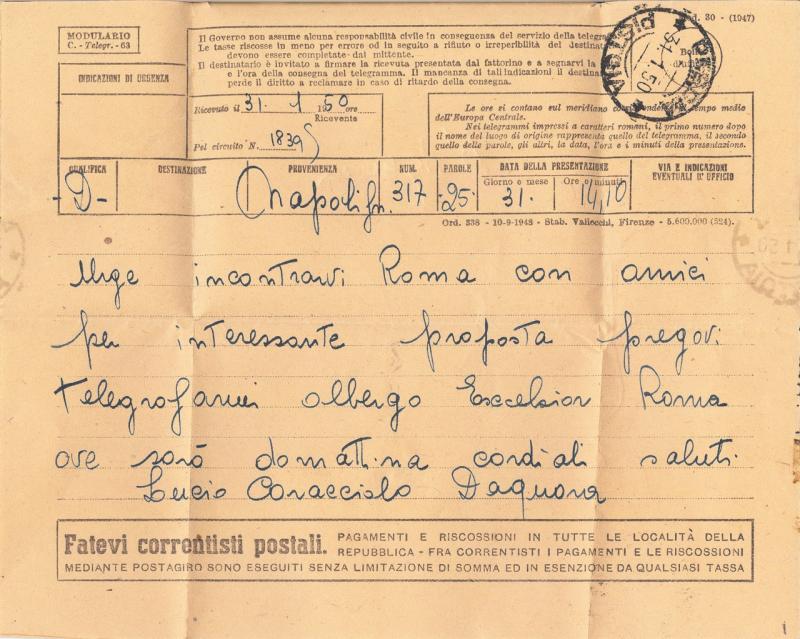 MODULARIO
C. - Telegr. - 63
INDICAZIONI DI URGENZA
Il Governo non assume alcuna responsabilità civile in conseguenza del servizio della
Le tasse riscosse in meno per errore od in seguito a rifiuto o irreperibilità del
devono essere completate dal mittente.
Il destinatario è invitato a firmare la ricevuta presentata dal fattorino e a segnarvi la
e l'ora della consegna del telegramma. Il mancanza di tali indicazioni il
perde il diritto a reclamare in caso di ritardo della consegna.
30 - (1947)
PISTOIA
31.1.50
Ricevuto il 31. 1 1950 ore
Ricevente
Pel circuito N. 1839
Le ore si contano sul meridiano tempo medio
dell'Europa Centrale.
Nei telegrammi impressi a caratteri romani, il primo numero dopo
il nome del luogo di origine rappresenta quello del telegramma, il secondo
quello delle parole, gli altri, la data, l'ora e i minuti della presentazione.
QUALIFICA DESTINAZIONE PROVENIENZA NUM. PAROLE DATA DELLA PRESENTAZIONE VIA E INDICAZIONI
Giorno e mese Ore e minuti EVENTUALI D'UFFICIO
-D- Napoli 317 25 31. 14,10
Ord. 338 - 10-9-1948 - Stab. Vallecchi, Firenze - 5.600.000 (524).
Urge incontravi Roma con amici
per interessante proposta pregovi
telegrafarmi albergo Excelsior Roma
ove sarò domattina cordiali saluti.
Lucio Caracciolo Daquara
Fatevi correntisti postali. PAGAMENTI E RISCOSSIONI IN TUTTE LE LOCALITÀ DELLA
REPUBBLICA - FRA CORRENTISTI I PAGAMENTI E LE RISCOSSIONI
MEDIANTE POSTAGIRO SONO ESEGUITI SENZA LIMITAZIONE DI SOMMA ED IN ESENZIONE DA QUALSIASI TASSA